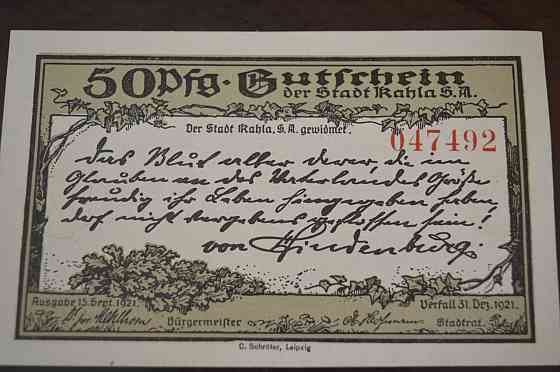 50 Pfg. Gutschein
der Stadt Kahla S.A.
Der Stadt Kahla, S.A. gewidmet.
047492
Das Blut aller derer, die im
Glauben an des Vaterlandes Größe
freudig ihr Leben hingegeben haben,
darf nicht vergebens geflossen sein!
von Hindenburg.
Ausgabe 15. Sept. 1921.
Verfall 31. Dez. 1921.
Bürgermeister
Stadtrat.
C. Schröter, Leipzig